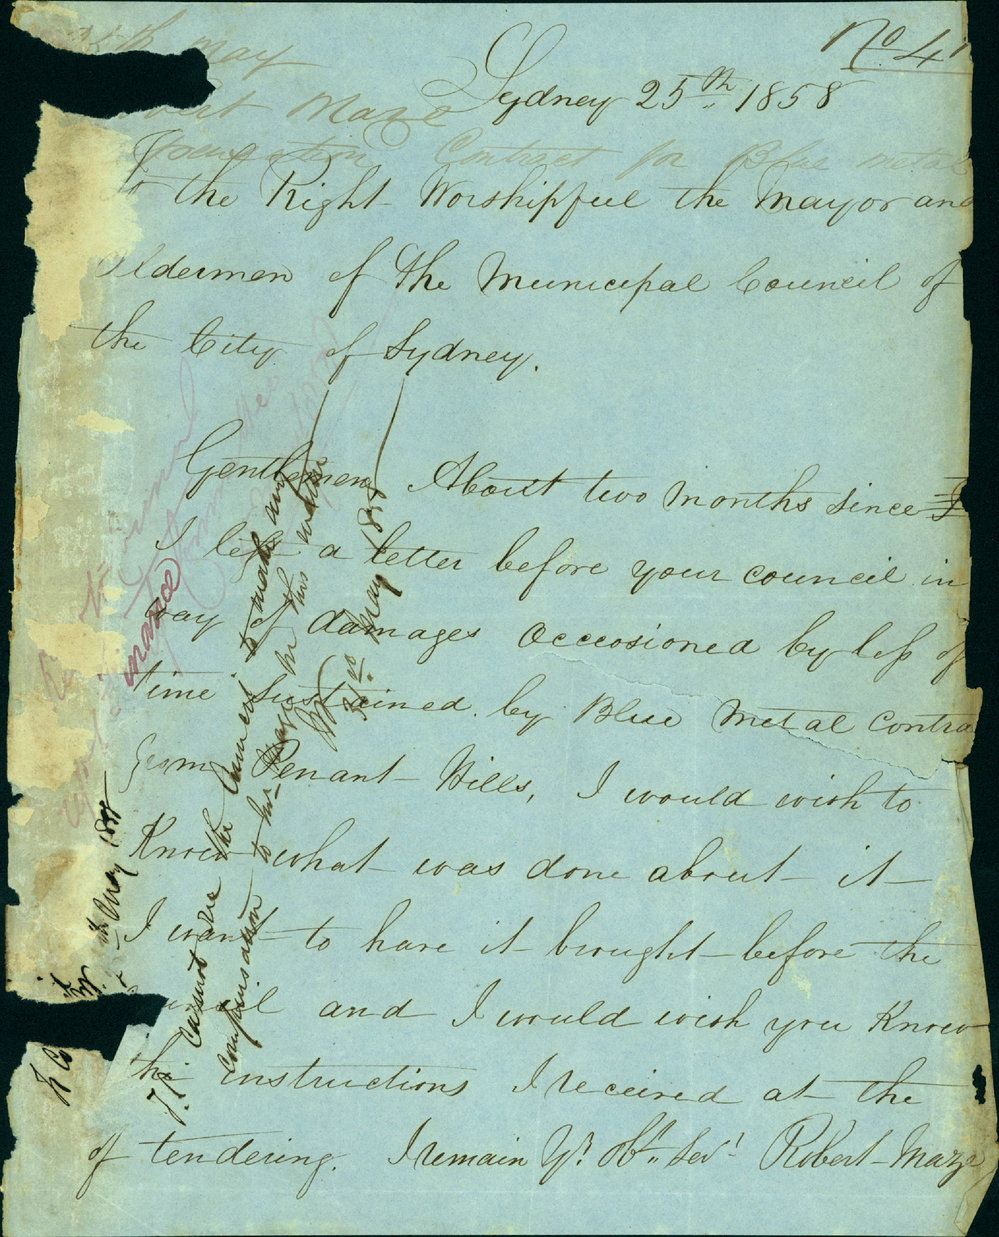 No 41
th May
Sydney 25th 1858
Robert Maze
Contract for Blue metal
To the Right Worshipfull the Mayor and
Aldermen of the Municipal Council of
the City of Sydney.
Gentlemen About two months since I
I left a letter before your council in
way of damages occosioned by loss of
time sustained by Blue Metal contra
from Penant Hills, I would wish to
Know what was done about it
I want to have it brought before the
Council and I would wish you Know
the instructions I received at the
of tendering. I remain Yr. Obt. Servt Robert Maze
cannot see the Council to make any
compensation to Mr Maze in this matter
31st May 1858
May 1858